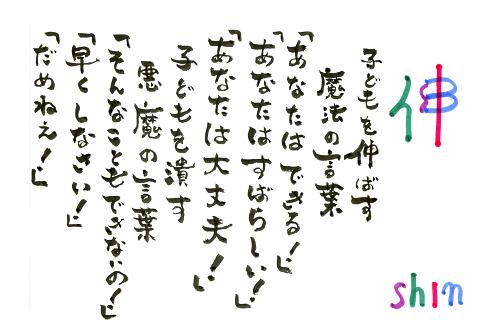 伸
子どもを伸ばす
魔法の言葉
「あなたはできる！」
「あなたはすばらしい！」
「あなたは大丈夫！」
子どもを潰す
悪魔の言葉
「そんなこともできないの！」
「早くしなさい！」
「だめねぇ！」
shin